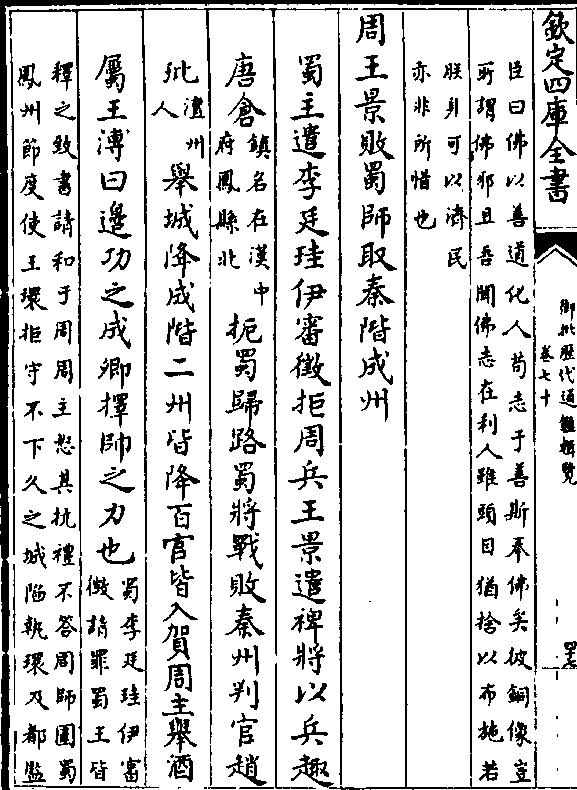 欽定四庫全書
御批歷代通鑑輯覽
卷七十
臣曰佛以善道化人苟志于善斯奉佛矣彼銅像豈
所謂佛邪且吾聞佛志在利人雖頭目猶捨以布施若
朕身可以濟民
亦非所惜也
周王景敗蜀師取秦階成州
蜀主遣李廷珪伊審徵拒周兵王景遣裨將以兵趣
唐倉鎮名在漢中府鳳縣北扼蜀歸路蜀將戰敗秦州判官趙
玭澶州人舉城降成階二州皆降百官皆入賀周主舉酒
屬王溥曰邊功之成卿擇帥之力也蜀李廷珪伊審徵請罪蜀主皆
釋之致書請和于周周主怒其抗禮不答周師圍蜀
鳳州節度使王環拒守不下久之城陷執環及都監